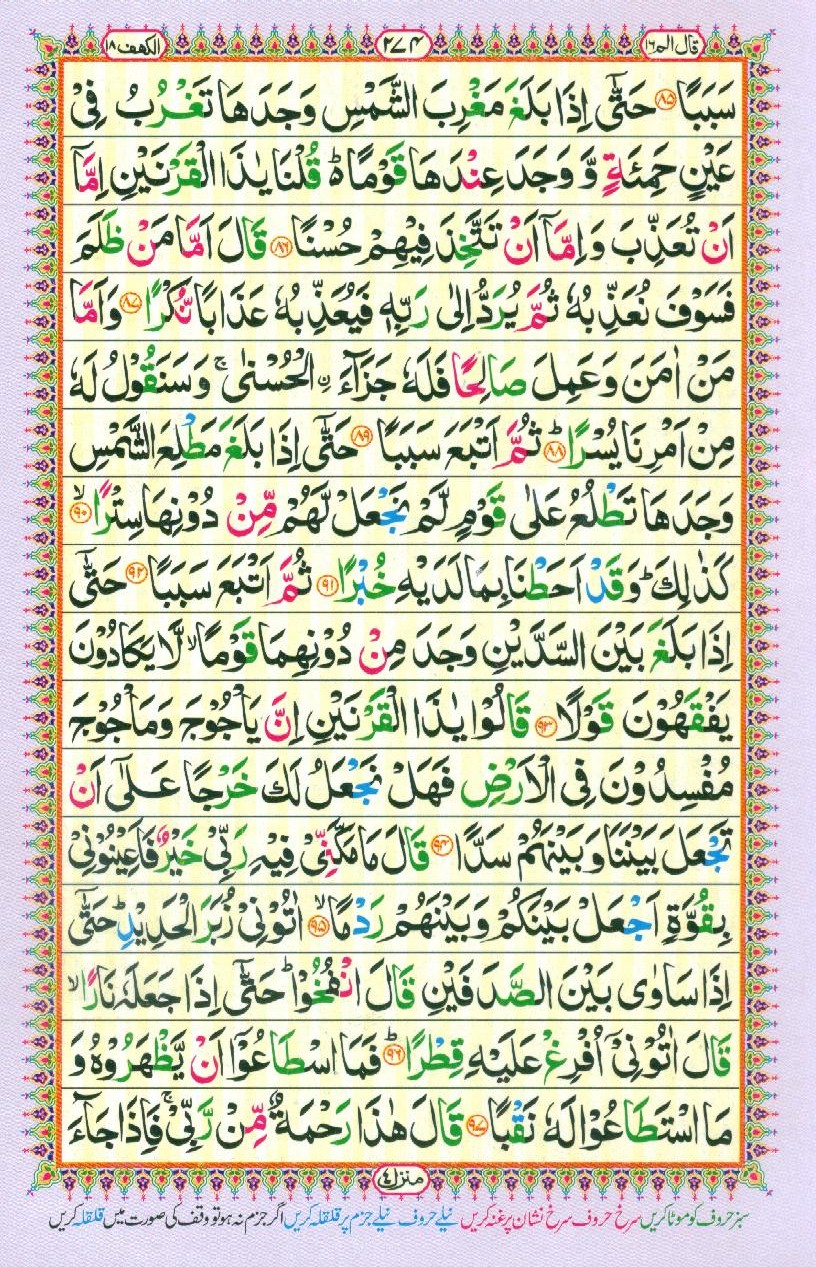 قال الم ۱۶
۲۷۴
الكهف ۱۸
سَبَبًا ﴿۸۵﴾ حَتّٰۤى اِذَا بَلَغَ مَغْرِبَ الشَّمْسِ وَجَدَهَا تَغْرُبُ فِیْ
عَیْنٍ حَمِئَةٍ وَّ وَجَدَ عِنْدَهَا قَوْمًا ؕ قُلْنَا یٰذَا الْقَرْنَیْنِ اِمَّاۤ
اَنْ تُعَذِّبَ وَ اِمَّاۤ اَنْ تَتَّخِذَ فِیْهِمْ حُسْنًا ﴿۸۶﴾ قَالَ اَمَّا مَنْ ظَلَمَ
فَسَوْفَ نُعَذِّبُهٗ ثُمَّ یُرَدُّ اِلٰى رَبِّهٖ فَیُعَذِّبُهٗ عَذَابًا نُّكْرًا ﴿۸۷﴾ وَ اَمَّا
مَنْ اٰمَنَ وَ عَمِلَ صَالِحًا فَلَهٗ جَزَآءَ ِ۟الْحُسْنٰى ۚ وَ سَنَقُوْلُ لَهٗ
مِنْ اَمْرِنَا یُسْرًا ﴿۸۸﴾ ثُمَّ اَتْبَعَ سَبَبًا ﴿۸۹﴾ حَتّٰۤى اِذَا بَلَغَ مَطْلِعَ الشَّمْسِ
وَجَدَهَا تَطْلُعُ عَلٰى قَوْمٍ لَّمْ نَجْعَلْ لَّهُمْ مِّنْ دُوْنِهَا سِتْرًا ۙ﴿۹۰﴾
كَذٰلِكَ ؕ وَ قَدْ اَحَطْنَا بِمَا لَدَیْهِ خُبْرًا ﴿۹۱﴾ ثُمَّ اَتْبَعَ سَبَبًا ﴿۹۲﴾ حَتّٰۤى
اِذَا بَلَغَ بَیْنَ السَّدَّیْنِ وَجَدَ مِنْ دُوْنِهِمَا قَوْمًا ۙ لَّا یَكَادُوْنَ
یَفْقَهُوْنَ قَوْلًا ﴿۹۳﴾ قَالُوْا یٰذَا الْقَرْنَیْنِ اِنَّ یَاْجُوْجَ وَ مَاْجُوْجَ
مُفْسِدُوْنَ فِی الْاَرْضِ فَهَلْ نَجْعَلُ لَكَ خَرْجًا عَلٰۤى اَنْ
تَجْعَلَ بَیْنَنَا وَ بَیْنَهُمْ سَدًّا ﴿۹۴﴾ قَالَ مَا مَكَّنِّیْ فِیْهِ رَبِّیْ خَیْرٌ فَاَعِیْنُوْنِیْ
بِقُوَّةٍ اَجْعَلْ بَیْنَكُمْ وَ بَیْنَهُمْ رَدْمًا ۙ﴿۹۵﴾ اٰتُوْنِیْ زُبَرَ الْحَدِیْدِ ؕ حَتّٰۤى
اِذَا سَاوٰى بَیْنَ الصَّدَفَیْنِ قَالَ انْفُخُوْا ؕ حَتّٰۤى اِذَا جَعَلَهٗ نَارًا ۙ
قَالَ اٰتُوْنِیْۤ اُفْرِغْ عَلَیْهِ قِطْرًا ؕ﴿۹۶﴾ فَمَا اسْطَاعُوْۤا اَنْ یَّظْهَرُوْهُ وَ
مَا اسْتَطَاعُوْا لَهٗ نَقْبًا ﴿۹۷﴾ قَالَ هٰذَا رَحْمَةٌ مِّنْ رَّبِّیْ ۚ فَاِذَا جَآءَ
منزل ۴
سبز حروف کو موٹا کریں سرخ حروف سرخ نشان پر غنہ کریں نیلے حروف نیلے جزم پر قلقلہ کریں اگر جزم نہ ہو تو وقف کی صورت میں قلقلہ کریں